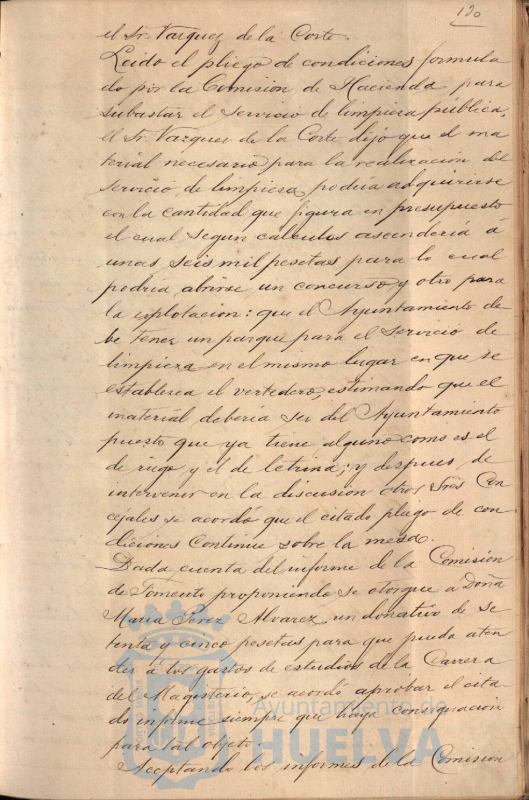 120
el Sr. Vazquez de la Corte.
Leido el pliego de condiciones formula
do por la Comision de Hacienda para
subastar el servicio de limpieza pública,
el Sr. Vazquez de la Corte dijo que el ma
terial necesario para la realizacion del
servicio de limpieza podria adquirirse
con la cantidad que figura en presupuesto
el cual segun calculos ascendería a
unas seis mil pesetas para lo cual
podria abrirse un concurso y otro para
la esplotacion: que el Ayuntamiento de
be tener un parque para el servicio de
limpieza en el mismo lugar en que se
establezca el vertedero, estimando que el
material debería ser del Ayuntamiento
puesto que ya tiene alguno como es el
de riego y el de letrina; y despues de
intervenir en la discusion otros Sres Con
cejales se acordó que el citado pliego de con
diciones continue sobre la mesa.
Dada cuenta del informe de la Comision
de Fomento proponiendo se otorgue a Doña
Maria Perez Alvarez un donativo de se
tenta y cinco pesetas para que pueda aten
der á los gastos de estudios de la Carrera
del Magisterio, se acordó aprobar el cita
do informe siempre que haya consignacion
para tal objeto.
Aceptando los informes de la Comision
Ayuntamiento de
HUELVA